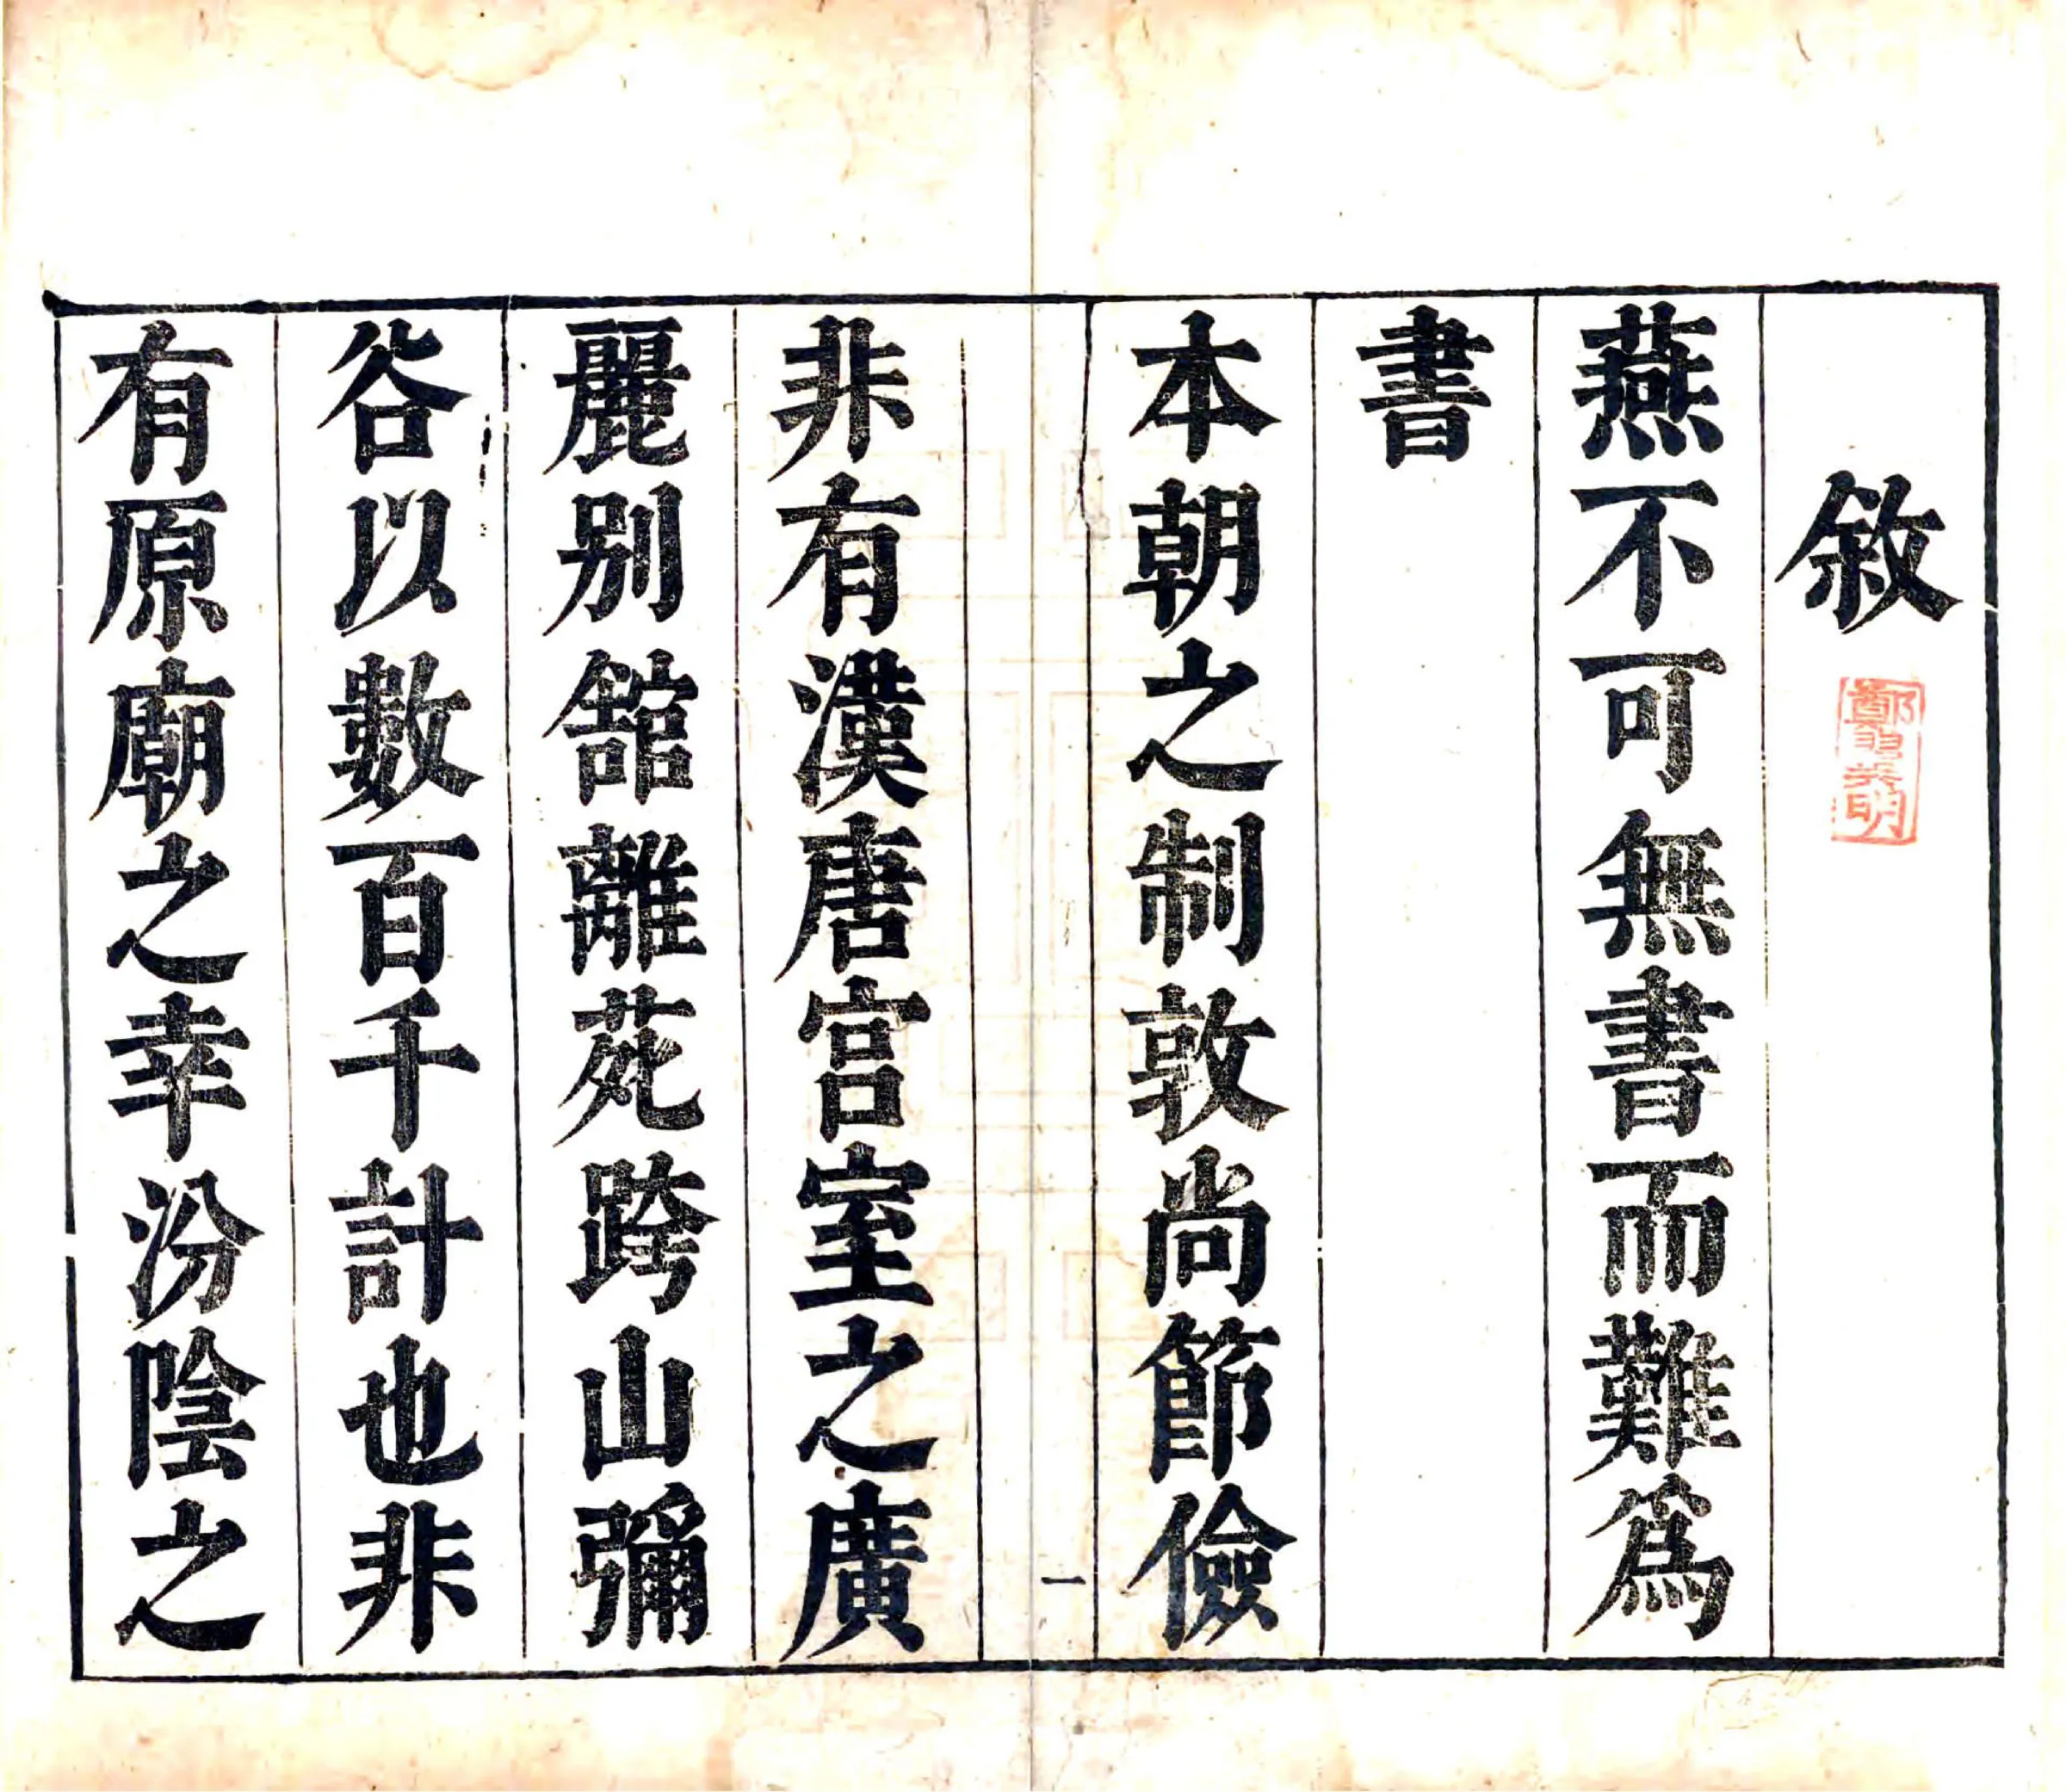 敘
燕不可無書而難爲
書
本朝之制敦尚節儉
一
非有漢唐宮室之廣
麗别舘離苑跨山彌
谷以數百千計也非
有原廟之幸汾陰之